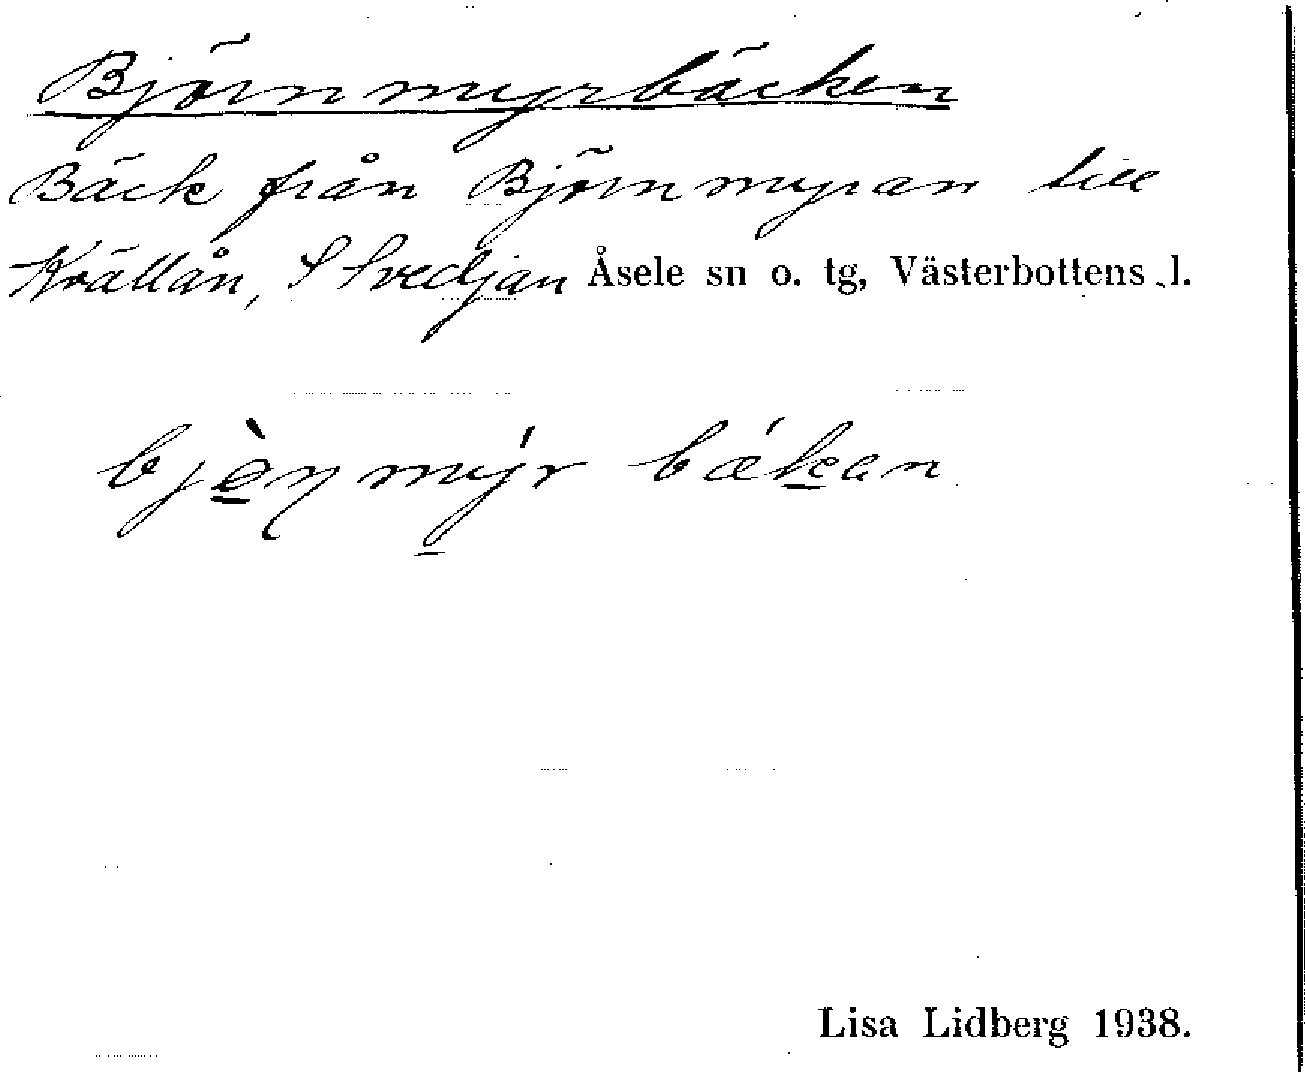 Björnmyrbäcken
Bäck från Björnmyran till
Krällån, Svedjan Åsele sn o. tg, Västerbottens l.
Lisa Lidberg 1938.